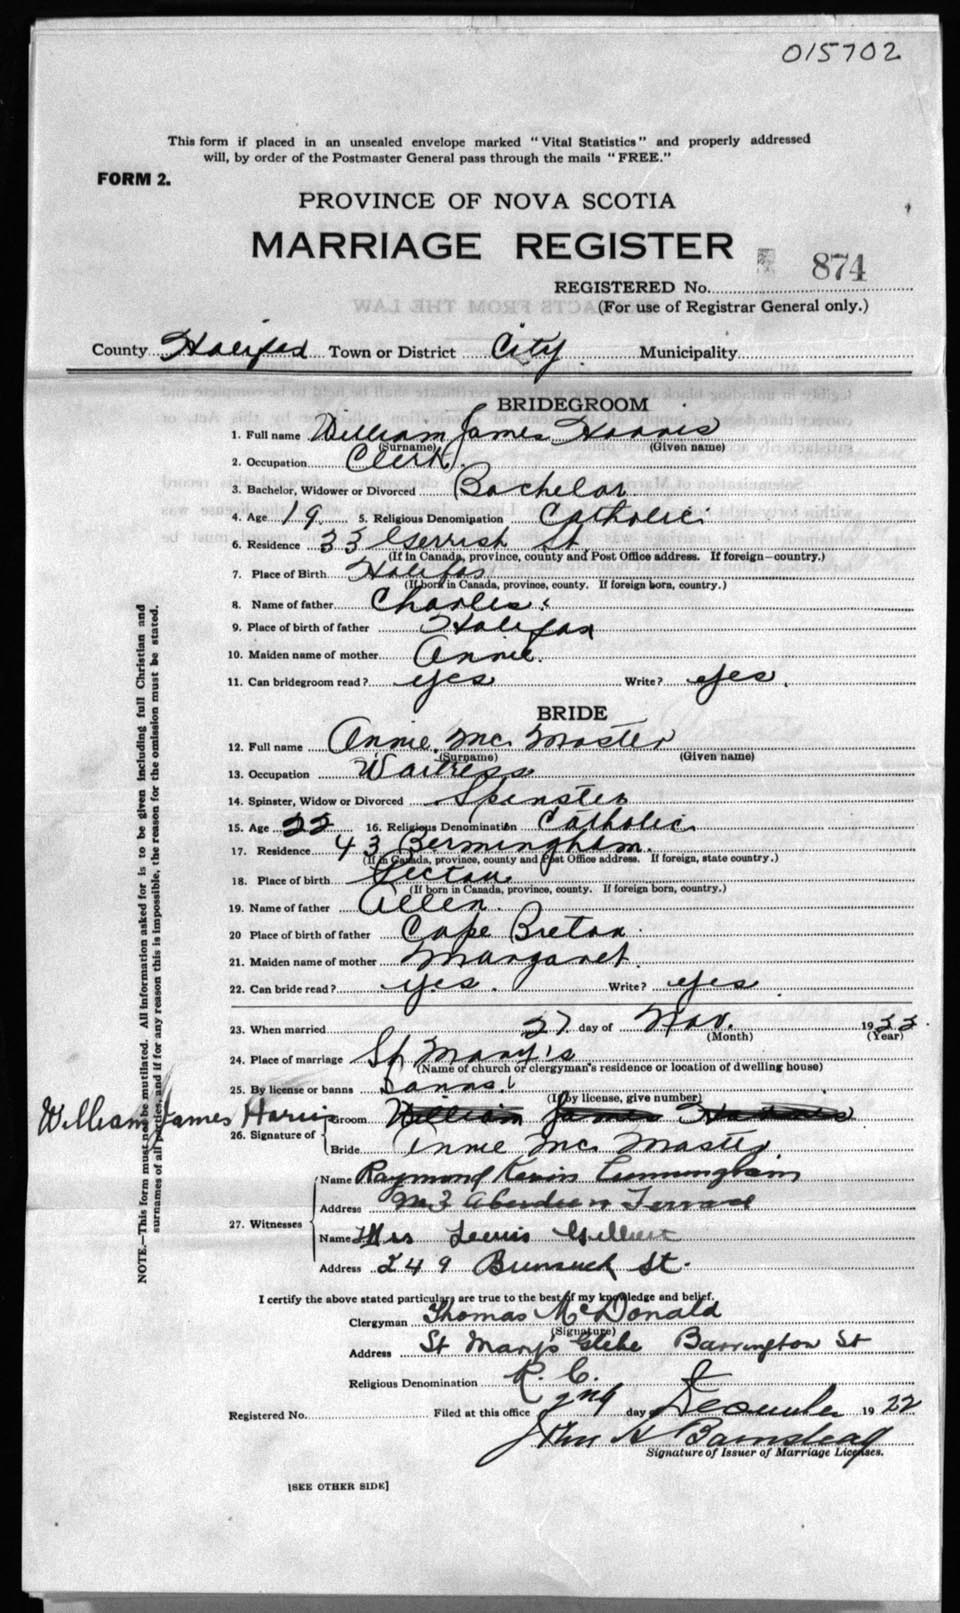 015702
This form if placed in an unsealed envelope marked "Vital Statistics" and properly addressed
will, by order of the Postmaster General pass through the mails "FREE."
FORM 2.
PROVINCE OF NOVA SCOTIA
MARRIAGE REGISTER
874
REGISTERED No.
(For use of Registrar General only.)
County Halifax Town or District City Municipality
BRIDEGROOM
1. Full name William James Harris
(Surname) (Given name)
2. Occupation Clerk.
3. Bachelor, Widower or Divorced Bachelor
4. Age 19 5. Religious Denomination Catholic
6. Residence 33 Gerrish St
(If in Canada, province, county and Post Office address. If foreign—country.)
7. Place of Birth Halifax
(If born in Canada, province, county. If foreign born, country.)
8. Name of father Charles
9. Place of birth of father Halifax
10. Maiden name of mother Annie.
11. Can bridegroom read? yes Write? yes.
BRIDE
12. Full name Annie Mc Master
(Surname) (Given name)
13. Occupation Waitress
14. Spinster, Widow or Divorced Spinster
15. Age 22 16. Religious Denomination Catholic
17. Residence 43 Bermingham.
(If in Canada, province, county and Post Office address. If foreign, state country.)
18. Place of birth Pictou
(If born in Canada, province, county. If foreign born, country.)
19. Name of father Allen.
20 Place of birth of father Cape Breton
21. Maiden name of mother Margaret.
22. Can bride read? yes. Write? yes
23. When married 27 day of Nov. 1922.
(Month) (Year)
24. Place of marriage St Mary's
(Name of church or clergyman's residence or location of dwelling house)
25. By license or banns Banns
(If by license, give number)
William James Harris Groom William James Harris
26. Signature of
Bride Annie Mc Master
27. Witnesses
Name Raymond Kevin Cunningham
Address Aberdeen Terrace
Name Mrs Lewis Gilbert
Address 249 Brunswick St.
I certify the above stated particulars are true to the best of my knowledge and belief.
Clergyman Thomas McDonald
(Signature)
Address St Mary's Glebe Barrington St
Religious Denomination R. C.
Registered No. Filed at this office 2nd day of December 1922
John H Barnstead
Signature of Issuer of Marriage Licenses.
[SEE OTHER SIDE]
NOTE.—This form must not be mutilated. All information asked for is to be given including full Christian and
surnames of all parties, and if for any reason this is impossible, the reason for the omission must be stated.